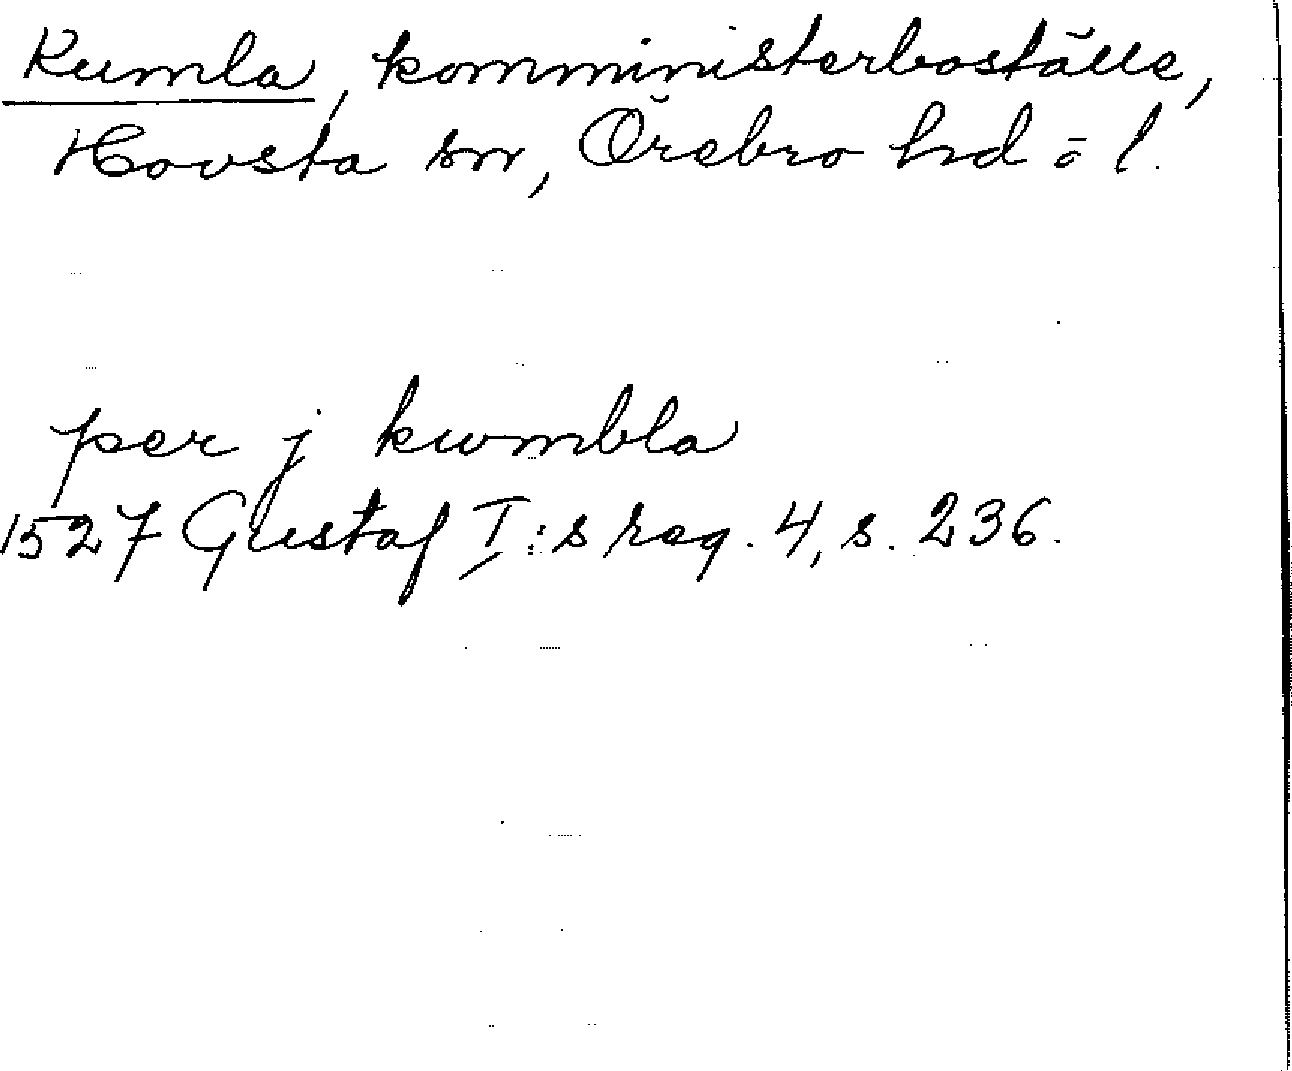 Kumla, komministerboställe,
Hovsta sn, Örebro hd o l.
per j kwmbla
1527 Gustaf I:s reg. 4, s. 236.